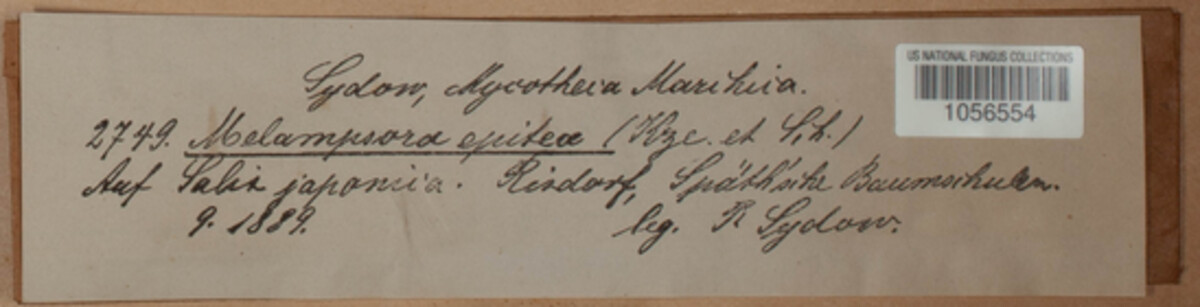 Sydow, Mycotheca Marchica.
US NATIONAL FUNGUS COLLECTIONS
1056554
2749. Melampsora epitea (Kze. et Sch.)
Auf Salix japonica. Rixdorf, Späth'sche Baumschulen.
9. 1889. leg. P Sydow.